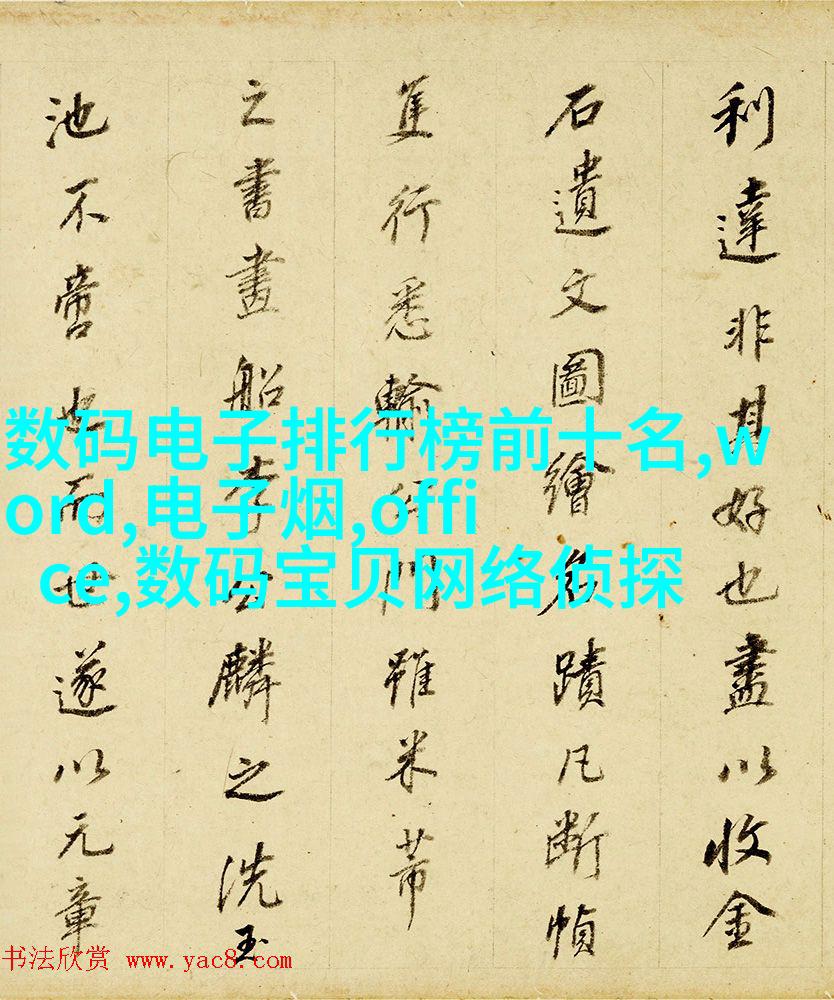 利達非其好也盡以收金
石遺文圖繪名蹟凡斷幀
隻行悉輸門雖米芾
之書畫船李公麟之洗玉
池不啻也而世遂以元章
数码电子排行榜前十名,w
ord,电子烟,offi
ce,数码宝贝网络侦探
书法欣赏 www.yac8.com